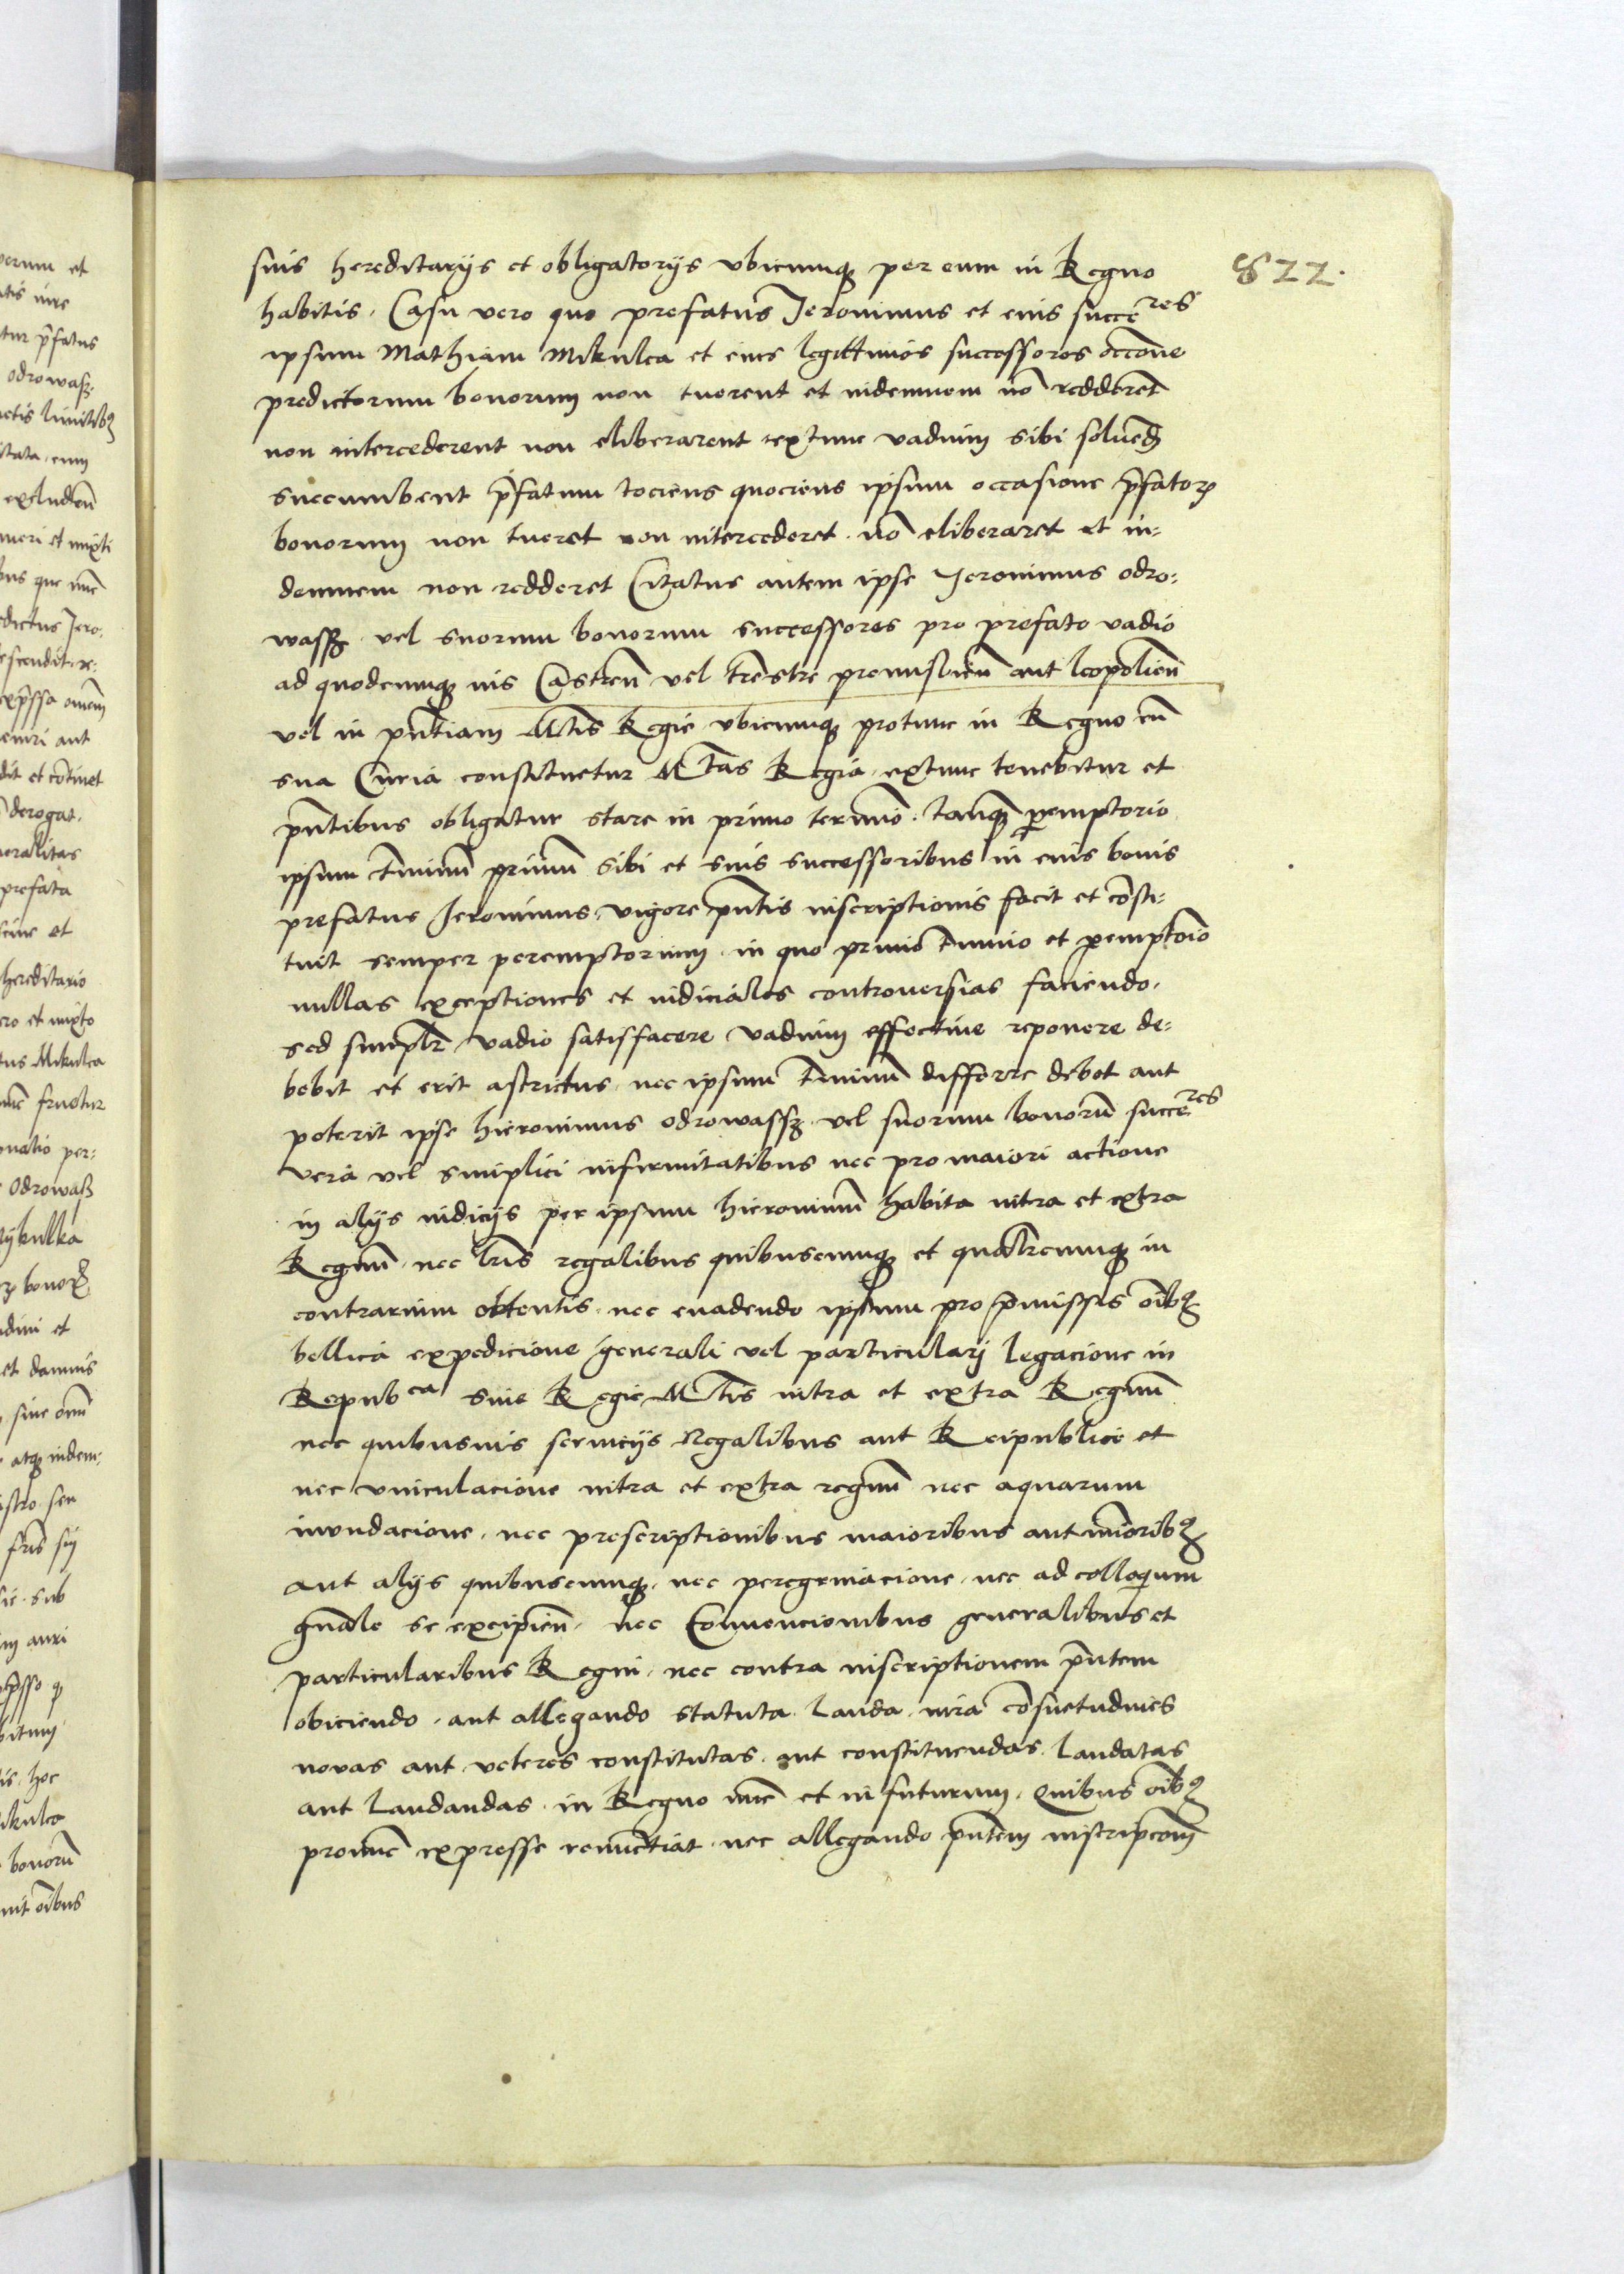 822.
suis hereditarijs et obligatorijs vbicunq̃ per eum in Regno
habitis. Casu vero quo prefatus Jeronimus et eius succe͠res
ipsum Mathiam Mikulca et eius legittimos successores occõne
predictorum bonorum non tuerent et indemnem nõ redderent
non intercederent non eliberarent extunc vadium sibi soluend̃
succumbent p̃fatum tociens quociens ipsum occasione p̃fatoꝝ
bonorum non tueret non intercederet. nõ eliberaret et in-
demnem non redderet Citatus autem ipse Jeronimus odro-
wassz vel suorum bonorum successores pro prefato vadio
ad quodcunq̃ ius Castreñ vel trẽstre premislieñ aut leopolieñ
vel in pñtiam Mtis Regie vbicunq̃ protunc in Regno cũ
sua Curia constituetur Mtas Regia, extunc tenebitur et
pñtibus obligatur stare in primo termino. tanq̃ peremptorio
ipsum t̃minũ primũ sibi et suis successoribus in eius bonis
prefatus Jeronimus vigore pñtis inscriptionis facit et cõsti-
tuit semper peremptorium. in quo primo t̃mino et peremptoĩo
nullas exceptiones et iudiciales controuersias faciendo.
sed simplr̃ vadio satisfacere vadium effectiue reponere de-
bebit et erit astrictus. nec ipsum t̃minũ differre debet aut
poterit ipse hieronimus odrowassz vel suorum bonorũ succe͠res
vera vel simplici infirmitatibus nec pro maiori actione
in alijs iudicijs per ipsum hieronimũ habita intra et extra
Regnũ. nec lr̃is regalibus quibuscunq̃ et qualr̃cunq̃ in
contrarium obtentis. nec euadendo ipsum pro p̃missis oĩbꝫ
bellica expedicione generali vel particularj legacione in
Repubca siue Regie Mtis intra et extra Regnũ
nec quibusuis seruicijs Regalibus aut Reipublice et
nec vinculacione intra et extra regnũ nec aquarum
inundacione. nec prescriptionibus maioribus aut mĩoribꝫ
aut alijs quibuscunq̃. nec peregrinacione. nec ad colloquium
gñale se excipieñ. nec Conuencionibus generalibus et
particularibus Regni. nec contra inscriptionem pñtem
obiciendo. aut allegando statuta. lauda. iura cõsuetudines
nouas aut veteres constitutas. aut constituendas. laudatas
aut laudandas. in Regno nũc et in futurum. Quibus oĩbꝫ
pronũc expresse renũctiat. nec allegando pñtem inscripcõm